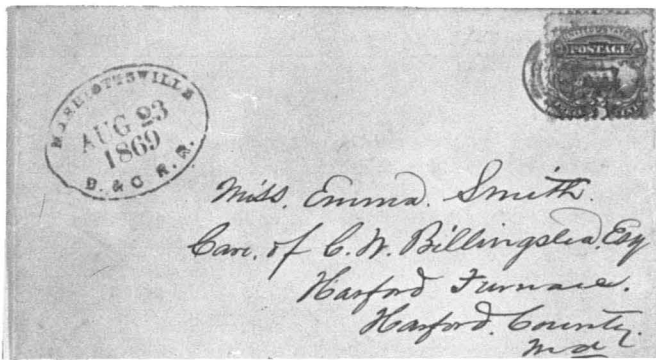 MARRIOTTSVILLE
AUG 23
1869
B. & O R. R.
UNITED STATES
POSTAGE
Miss. Emma. Smith.
Care. of C. W. Billingslea. Esq
Harford Furnace.
Harford. County.
Md